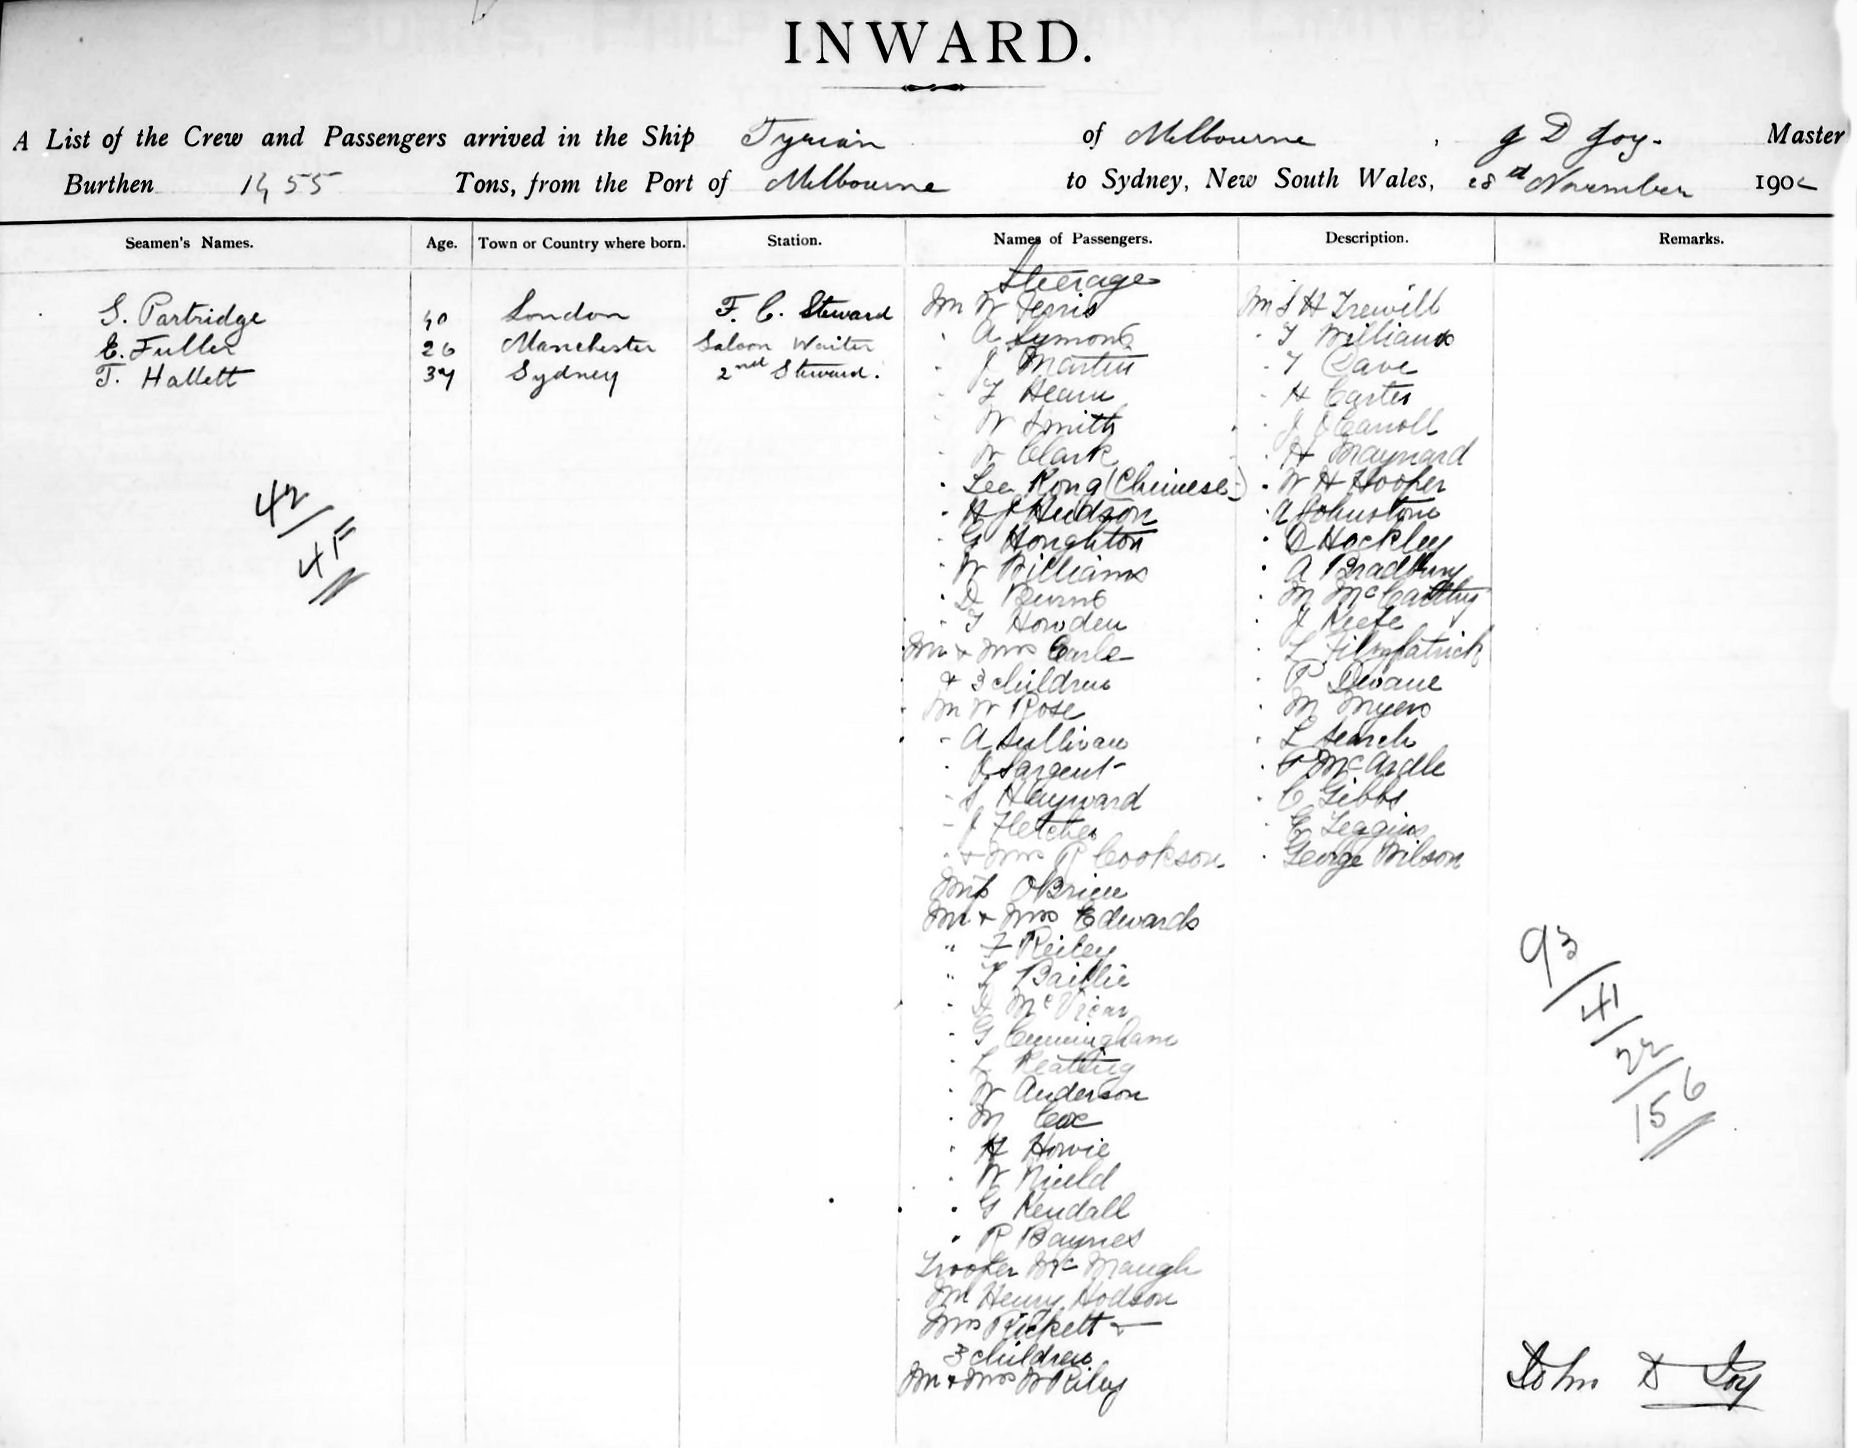 INWARD.
A List of the Crew and Passengers arrived in the Ship Tyrian of Melbourne, J D Joy. Master
Burthen 1455 Tons, from the Port of Melbourne to Sydney, New South Wales, 28th November 190
Seamen's Names. Age. Town or Country where born. Station. Names of Passengers. Description. Remarks.
G. Partridge 40 London F. C. Steward
E. Fuller 26 Manchester Saloon Waiter
T. Hallett 37 Sydney 2nd Steward.
42/
45
Steerage
Mr W Ferris
A Symons
J Martin
T Hearn
W Smith
W Clark
Lee Kong (Chinese)
H J Hudson
G Houghton
W Williams
D Burns
T Howden
Mr & Mrs Earle
& 3 children
Mr W Rose
A Sullivan
J Sargent
S Hayward
J Fletcher
& Mrs R Cookson
Miss OBrien
Mr & Mrs Edwards
" F Reiley
" T Baillie
D McVicar
G Cunningham
L Keating
W Anderson
M Cox
H Howie
W Nield
G Kendall
R Baynes
Trooper McMaugh
Mr Henry Hodson
Mrs Rickett &
3 children
Mr & Mrs W Riley
Mr S H Trewill
T Williams
T Dave
H Carter
J OCarroll
H Maynard
W H Hooper
A Johnstone
D Hockley
A Bradbury
M McCarthy
J Keefe
L Fitzpatrick
P Dwane
M Myers
L Search
F McArdle
C Gibbs
E Leggins
George Wilson
93/
41/
22/
156
John D Joy